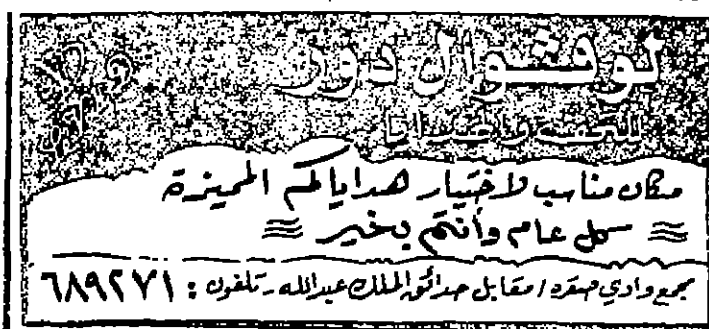 لوفشوال دور
للتحف والهدايا
مكان مناسب لاختيار هداياكم المميزة
كل عام وأنتم بخير
مجمع وادي صقره / مقابل حدائق الملك عبدالله - تلفون : ٦٨٩٢٧١